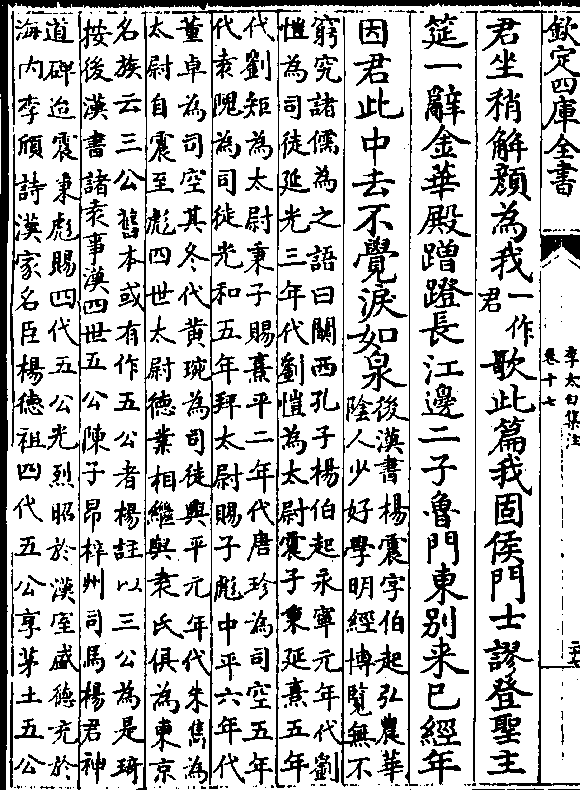 欽定四庫全書
李太白集注
卷十七
君坐稍解顏為我一作君歌此篇我固侯門士謬登聖主
筵一辭金華殿蹭蹬長江邊二子魯門東別來已經年
因君此中去不覺淚如泉
後漢書楊震字伯起弘農華
陰人少好學明經博覽無不
窮究諸儒為之語曰關西孔子楊伯起永寧元年代劉
愷為司徒延光三年代劉愷為太尉震子秉延熹五年
代劉矩為太尉秉子賜熹平二年代唐珍為司空五年
代袁隗為司徒光和五年拜太尉賜子彪中平六年代
董卓為司空其冬代黄琬為司徒興平元年代朱儁為
太尉自震至彪四世太尉德業相繼與袁氏俱為東京
名族云三公舊本或有作五公者楊註以三公為是琦
按後漢書諸袁事漢四世五公陳子昂梓州司馬楊君神
道碑迨震秉彪賜四代五公光烈昭於漢室盛德充於
海内李頎詩漢家名臣楊德祖四代五公享茅土五公